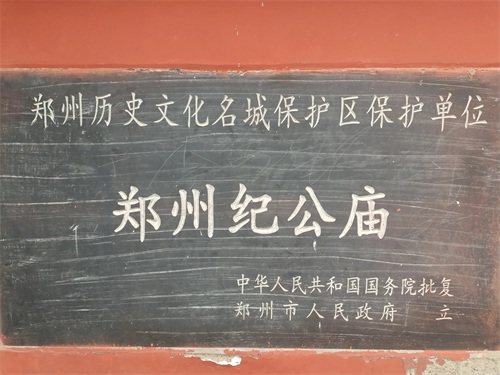 郑州历史文化名城保护区保护单位
郑州纪公庙
中华人民共和国国务院批复
郑州市人民政府 立